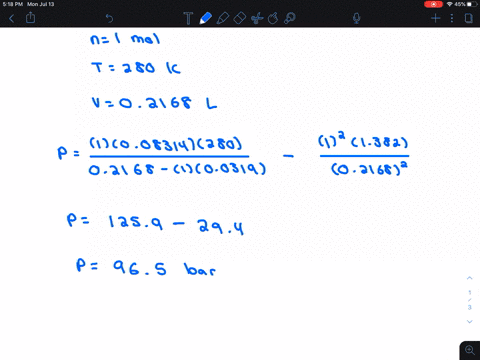 5:18 PM Mon Jul 13
45%
n=1 mol
T=280 K
V=0.2168 L
P= (1)(0.08314)(280) / 0.2168-(1)(0.0319) - (1)²(1.382) / (0.2168)²
P= 125.9 - 29.4
P= 96.5 bar
1
/
3